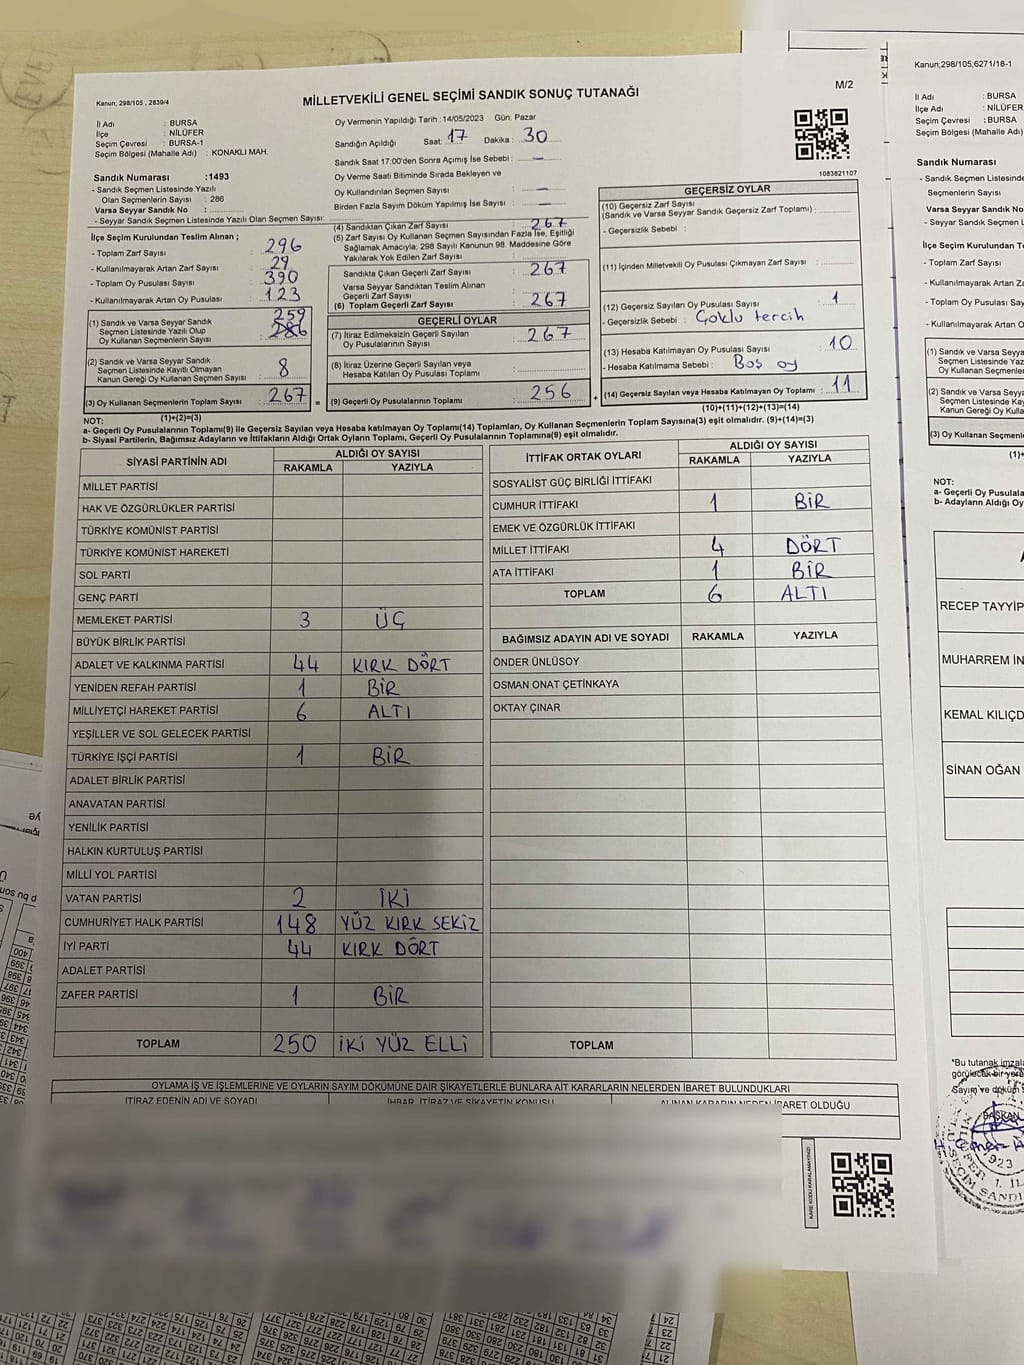 Kanun; 298/105 , 2839/4
MİLLETVEKİLİ GENEL SEÇİMİ SANDIK SONUÇ TUTANAĞI
M/2
İl Adı : BURSA
İlçe : NİLÜFER
Seçim Çevresi : BURSA-1
Seçim Bölgesi (Mahalle Adı) : KONAKLI MAH.
Sandık Numarası :1493
- Sandık Seçmen Listesinde Yazılı
Olan Seçmenlerin Sayısı : 286
Varsa Seyyar Sandık No :
- Seyyar Sandık Seçmen Listesinde Yazılı Olan Seçmen Sayısı:
İlçe Seçim Kurulundan Teslim Alınan ;
- Toplam Zarf Sayısı : 296
- Kullanılmayarak Artan Zarf Sayısı : 29
- Toplam Oy Pusulası : 390
- Kullanılmayarak Artan Oy Pusulası : 123
(1) Sandık ve Varsa Seyyar Sandık
Seçmen Listesinde Yazılı Olup
Oy Kullanan Seçmenlerin Sayısı : 259
286
(2) Sandık ve Varsa Seyyar Sandık
Seçmen Listesinde Kayıtlı Olmayan
Kanun Gereği Oy Kullanan Seçmen Sayısı : 8
(3) Oy Kullanan Seçmenlerin Toplam Sayısı : 267
(1)+(2)=(3)
Oy Vermenin Yapıldığı Tarih :14/05/2023 Gün: Pazar
Sandığın Açıldığı Saat: 17 Dakika : 30
Sandık Saat 17:00'den Sonra Açılmış İse Sebebi : —
Oy Verme Saati Bitiminde Sırada Bekleyen ve
Oy Kullandırılan Seçmen Sayısı : —
Birden Fazla Sayım Döküm Yapılmış İse Sayısı : —
(4) Sandıktan Çıkan Zarf Sayısı : 267
(5) Zarf Sayısı Oy Kullanan Seçmen Sayısından Fazla İse, Eşitliği
Sağlamak Amacıyla; 298 Sayılı Kanunun 98. Maddesine Göre
Yakılarak Yok Edilen Zarf Sayısı :
Sandıkta Çıkan Geçerli Zarf Sayısı : 267
Varsa Seyyar Sandıktan Teslim Alınan
Geçerli Zarf Sayısı :
(6) Toplam Geçerli Zarf Sayısı : 267
GEÇERLİ OYLAR
(7) İtiraz Edilmeksizin Geçerli Sayılan
Oy Pusulalarının Sayısı : 267
(8) İtiraz Üzerine Geçerli Sayılan veya
Hesaba Katılan Oy Pusulası Toplamı :
= (9) Geçerli Oy Pusulalarının Toplamı : 256 +
1083821107
GEÇERSİZ OYLAR
(10) Geçersiz Zarf Sayısı
(Sandık ve Varsa Seyyar Sandık Geçersiz Zarf Toplamı) :
- Geçersizlik Sebebi :
(11) İçinden Milletvekili Oy Pusulası Çıkmayan Zarf Sayısı :
(12) Geçersiz Sayılan Oy Pusulası Sayısı : 1
- Geçersizlik Sebebi : Çoklu tercih
(13) Hesaba Katılmayan Oy Pusulası Sayısı : 10
- Hesaba Katılmama Sebebi : Boş oy
(14) Geçersiz Sayılan veya Hesaba Katılmayan Oy Toplamı : 11
(10)+(11)+(12)+(13)=(14)
NOT:
a- Geçerli Oy Pusulalarının Toplamı(9) ile Geçersiz Sayılan veya Hesaba katılmayan Oy Toplamı(14) Toplamları, Oy Kullanan Seçmenlerin Toplam Sayısına(3) eşit olmalıdır. (9)+(14)=(3)
b- Siyasi Partilerin, Bağımsız Adayların ve İttifakların Aldığı Ortak Oyların Toplamı, Geçerli Oy Pusulalarının Toplamına(9) eşit olmalıdır.
SİYASİ PARTİNİN ADI ALDIĞI OY SAYISI
RAKAMLA YAZIYLA
MİLLET PARTİSİ
HAK VE ÖZGÜRLÜKLER PARTİSİ
TÜRKİYE KOMÜNİST PARTİSİ
TÜRKİYE KOMÜNİST HAREKETİ
SOL PARTİ
GENÇ PARTİ
MEMLEKET PARTİSİ 3 ÜÇ
BÜYÜK BİRLİK PARTİSİ
ADALET VE KALKINMA PARTİSİ 44 KIRK DÖRT
YENİDEN REFAH PARTİSİ 1 BİR
MİLLİYETÇİ HAREKET PARTİSİ 6 ALTI
YEŞİLLER VE SOL GELECEK PARTİSİ
TÜRKİYE İŞÇİ PARTİSİ 1 BİR
ADALET BİRLİK PARTİSİ
ANAVATAN PARTİSİ
YENİLİK PARTİSİ
HALKIN KURTULUŞ PARTİSİ
MİLLİ YOL PARTİSİ
VATAN PARTİSİ 2 İKİ
CUMHURİYET HALK PARTİSİ 148 YÜZ KIRK SEKİZ
İYİ PARTİ 44 KIRK DÖRT
ADALET PARTİSİ
ZAFER PARTİSİ 1 BİR
TOPLAM 250 İKİ YÜZ ELLİ
İTTİFAK ORTAK OYLARI ALDIĞI OY SAYISI
RAKAMLA YAZIYLA
SOSYALİST GÜÇ BİRLİĞİ İTTİFAKI
CUMHUR İTTİFAKI 1 BİR
EMEK VE ÖZGÜRLÜK İTTİFAKI
MİLLET İTTİFAKI 4 DÖRT
ATA İTTİFAKI 1 BİR
TOPLAM 6 ALTI
BAĞIMSIZ ADAYIN ADI VE SOYADI RAKAMLA YAZIYLA
ÖNDER ÜNLÜSOY
OSMAN ONAT ÇETİNKAYA
OKTAY ÇINAR
TOPLAM
OYLAMA İŞ VE İŞLEMLERİNE VE OYLARIN SAYIM DÖKÜMÜNE DAİR ŞİKAYETLERLE BUNLARA AİT KARARLARIN NELERDEN İBARET BULUNDUKLARI
İTİRAZ EDENİN ADI VE SOYADI İHBAR, İTİRAZ VE ŞİKAYETİN KONUSU ALINAN KARARIN NEDEN İBARET OLDUĞU
KARE KODU KARALAMAYINIZ!
Kanun;298/105,6271/18-1
İl Adı : BURSA
İlçe Adı : NİLÜFER
Seçim Çevresi : BURSA
Seçim Bölgesi (Mahalle Adı)
Sandık Numarası
- Sandık Seçmen Listesinde
Seçmenlerin Sayısı
Varsa Seyyar Sandık No
- Seyyar Sandık Seçmen L
İlçe Seçim Kurulundan T
- Toplam Zarf Sayısı
- Kullanılmayarak Artan Za
- Toplam Oy Pusulası Say
- Kullanılmayarak Artan O
(1) Sandık ve Varsa Seyya
Seçmen Listesinde Yaz
Oy Kullanan Seçmenle
(2) Sandık ve Varsa Seyya
Seçmen Listesinde Kay
Kanun Gereği Oy Kulla
(3) Oy Kullanan Seçmenle
(1)+
NOT:
a- Geçerli Oy Pusulala
b- Adayların Aldığı Oy
RECEP TAYYİP
MUHARREM İN
KEMAL KILIÇD
SİNAN OĞAN
*Bu tutanak imzala
görülecek bir yere
Sayım ve döküm
BAŞKAN